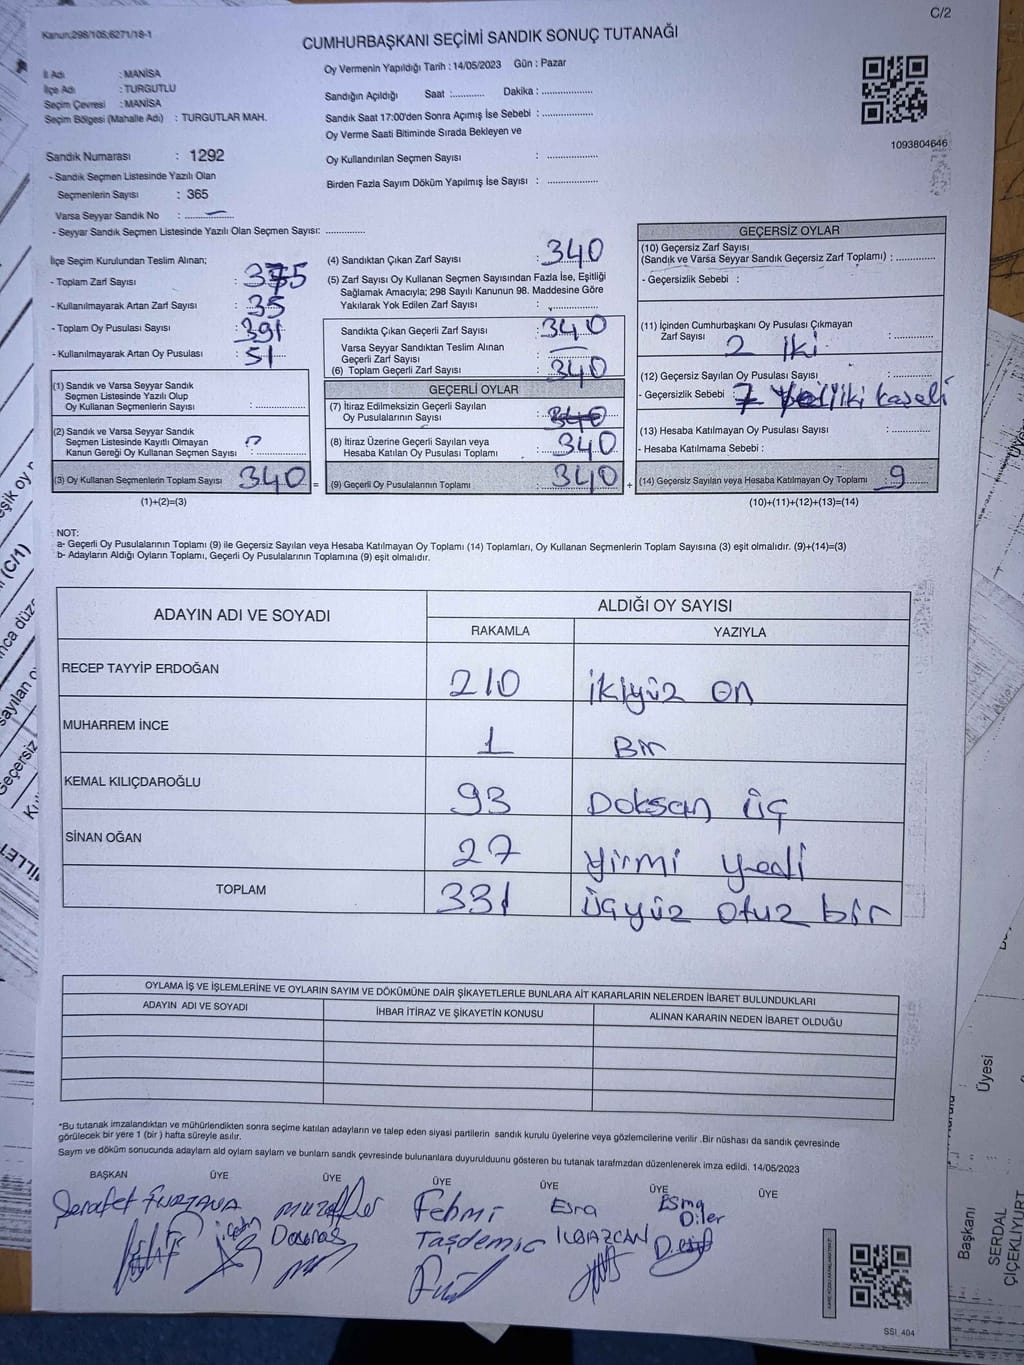 C/2
Kanun;298/105;6271/18-1
CUMHURBAŞKANI SEÇİMİ SANDIK SONUÇ TUTANAĞI
İl Adı : MANİSA
İlçe Adı : TURGUTLU
Seçim Çevresi : MANİSA
Seçim Bölgesi (Mahalle Adı) : TURGUTLAR MAH.
Oy Vermenin Yapıldığı Tarih : 14/05/2023 Gün : Pazar
Sandığın Açıldığı Saat :........... Dakika : ..................
Sandık Saat 17:00'den Sonra Açımış İse Sebebi : ..................
Oy Verme Saati Bitiminde Sırada Bekleyen ve
Oy Kullandırılan Seçmen Sayısı : ..................
Birden Fazla Sayım Döküm Yapılmış İse Sayısı : ..................
1093804646
Sandık Numarası : 1292
- Sandık Seçmen Listesinde Yazılı Olan
Seçmenlerin Sayısı : 365
Varsa Seyyar Sandık No :
- Seyyar Sandık Seçmen Listesinde Yazılı Olan Seçmen Sayısı: ..............
İlçe Seçim Kurulundan Teslim Alınan;
- Toplam Zarf Sayısı : 375
- Kullanılmayarak Artan Zarf Sayısı : 35
- Toplam Oy Pusulası Sayısı : 391
- Kullanılmayarak Artan Oy Pusulası : 51
(1) Sandık ve Varsa Seyyar Sandık
Seçmen Listesinde Yazılı Olup
Oy Kullanan Seçmenlerin Sayısı : ..................
(2) Sandık ve Varsa Seyyar Sandık
Seçmen Listesinde Kayıtlı Olmayan
Kanun Gereği Oy Kullanan Seçmen Sayısı :
(3) Oy Kullanan Seçmenlerin Toplam Sayısı 340
(1)+(2)=(3)
(4) Sandıktan Çıkan Zarf Sayısı : 340
(5) Zarf Sayısı Oy Kullanan Seçmen Sayısından Fazla İse, Eşitliği
Sağlamak Amacıyla; 298 Sayılı Kanunun 98. Maddesine Göre
Yakılarak Yok Edilen Zarf Sayısı : ..................
Sandıkta Çıkan Geçerli Zarf Sayısı : 340
Varsa Seyyar Sandıktan Teslim Alınan
Geçerli Zarf Sayısı :
(6) Toplam Geçerli Zarf Sayısı : 340
GEÇERLİ OYLAR
(7) İtiraz Edilmeksizin Geçerli Sayılan
Oy Pusulalarının Sayısı : 340
(8) İtiraz Üzerine Geçerli Sayılan veya
Hesaba Katılan Oy Pusulası Toplamı : 340
= (9) Geçerli Oy Pusulalarının Toplamı : 340
GEÇERSİZ OYLAR
(10) Geçersiz Zarf Sayısı
(Sandık ve Varsa Seyyar Sandık Geçersiz Zarf Toplamı) : ..............
- Geçersizlik Sebebi :
(11) İçinden Cumhurbaşkanı Oy Pusulası Çıkmayan
Zarf Sayısı 2 iki
(12) Geçersiz Sayılan Oy Pusulası Sayısı : ..............
- Geçersizlik Sebebi 7
(13) Hesaba Katılmayan Oy Pusulası Sayısı : ..............
- Hesaba Katılmama Sebebi :
+ (14) Geçersiz Sayılan veya Hesaba Katılmayan Oy Toplamı : 9
(10)+(11)+(12)+(13)=(14)
NOT:
a- Geçerli Oy Pusulalarının Toplamı (9) ile Geçersiz Sayılan veya Hesaba Katılmayan Oy Toplamı (14) Toplamları, Oy Kullanan Seçmenlerin Toplam Sayısına (3) eşit olmalıdır. (9)+(14)=(3)
b- Adayların Aldığı Oyların Toplamı, Geçerli Oy Pusulalarının Toplamına (9) eşit olmalıdır.
ADAYIN ADI VE SOYADI ALDIĞI OY SAYISI
RAKAMLA YAZIYLA
RECEP TAYYİP ERDOĞAN 210 ikiyüz on
MUHARREM İNCE 1 Bir
KEMAL KILIÇDAROĞLU 93 Doksan üç
SİNAN OĞAN 27 yirmi yedi
TOPLAM 331 üçyüz otuz bir
OYLAMA İŞ VE İŞLEMLERİNE VE OYLARIN SAYIM VE DÖKÜMÜNE DAİR ŞİKAYETLERLE BUNLARA AİT KARARLARIN NELERDEN İBARET BULUNDUKLARI
ADAYIN ADI VE SOYADI İHBAR İTİRAZ VE ŞİKAYETİN KONUSU ALINAN KARARIN NEDEN İBARET OLDUĞU
*Bu tutanak imzalandıktan ve mühürlendikten sonra seçime katılan adayların ve talep eden siyasi partilerin sandık kurulu üyelerine veya gözlemcilerine verilir .Bir nüshası da sandık çevresinde
görülecek bir yere 1 (bir ) hafta süreyle asılır.
Sayım ve döküm sonucunda adayların ald oyların saylam ve bunların sandk çevresinde bulunanlara duyurulduunu gösteren bu tutanak tarafmzdan düzenlenerek imza edildi. 14/05/2023
BAŞKAN ÜYE ÜYE ÜYE ÜYE ÜYE ÜYE
Şerafet FURTANA muzaffer Fehmi Esra Esma
Taşdemir İLBAZCAN Diler
SSI_404
Üyesi
Başkanı
SERDAL
ÇİÇEKLİYURT
(C/1)